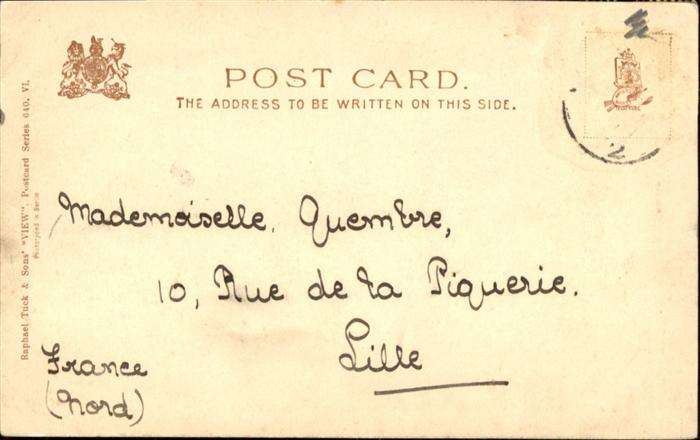 POST CARD.
THE ADDRESS TO BE WRITTEN ON THIS SIDE.
Raphael Tuck & Sons' "VIEW". Postcard Series 640. VI.
2
Mademoiselle. Quembre,
10, Rue de la Piquerie.
Lille
France
(Nord)